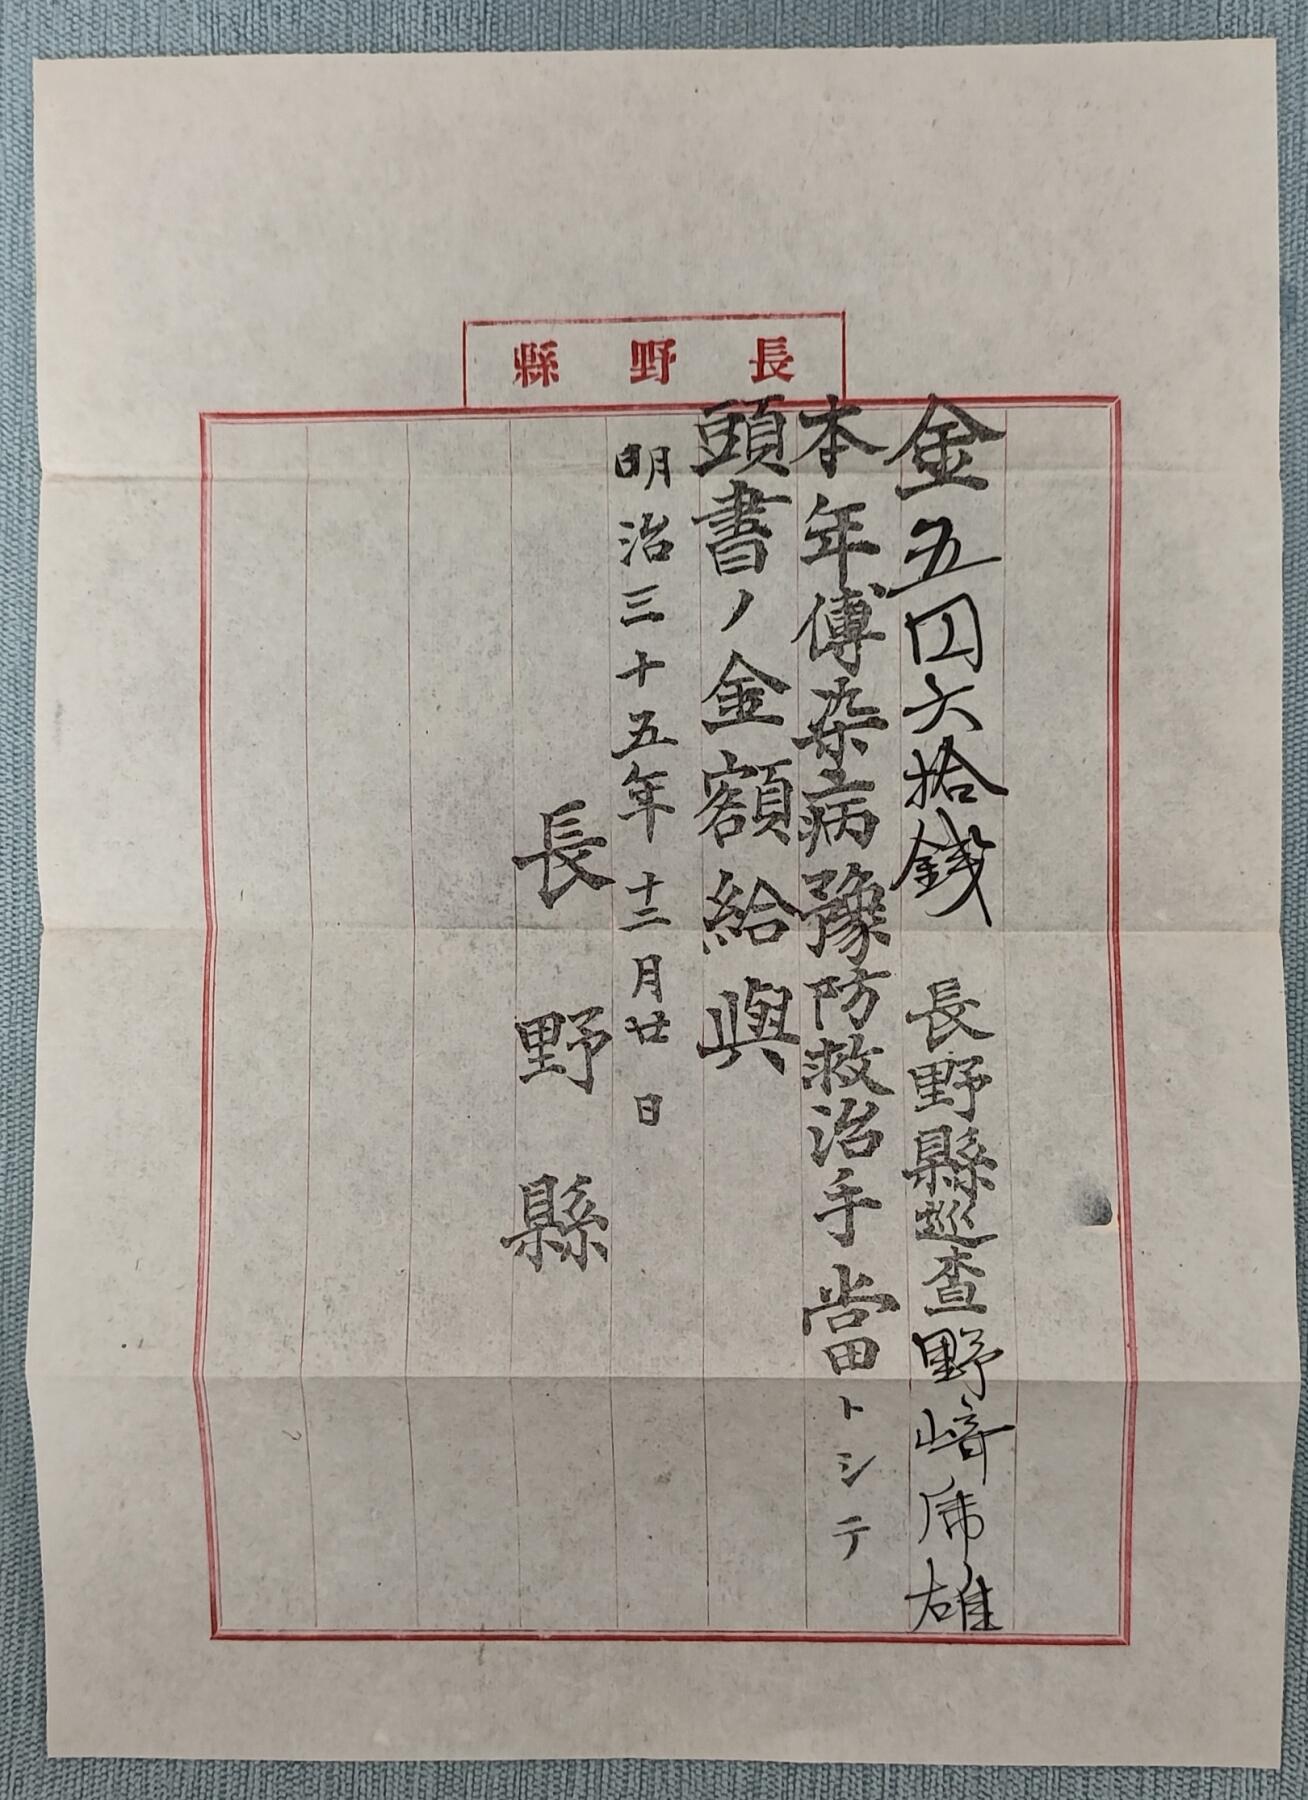 長野縣
金五円六拾錢 長野縣巡査野﨑虎雄
本年傳染病豫防救治手當トシテ
頭書ノ金額給與
明治三十五年十二月廿日
長野縣